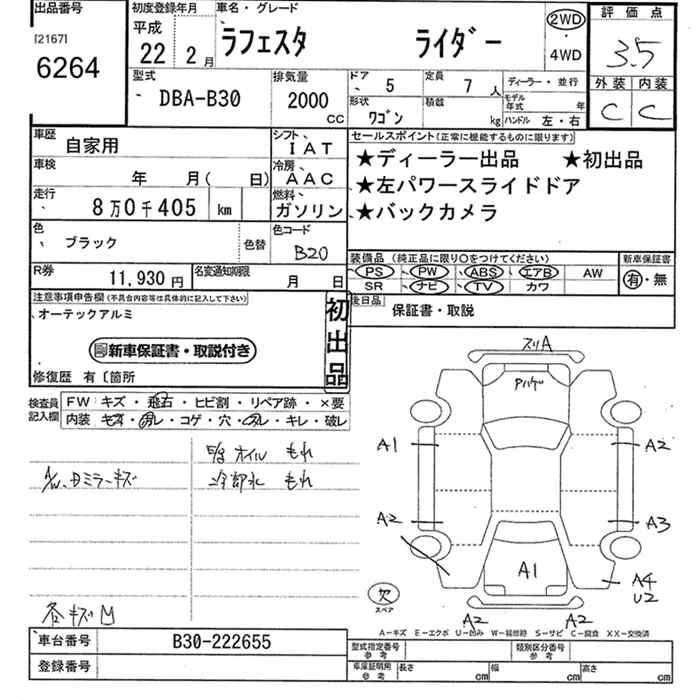 出品番号 初度登録年月 車名・グレード 評価点
[2167] 平成 ラフェスタ ライダー 2WD 3.5
6264 22年 2月 4WD
型式 排気量 ドア 5 定員 7人 ディーラー・並行 外装 内装
DBA-B30 2000cc 形状 ワゴン 積載 kg モデル年式 年 C C
ハンドル 左・右
車歴 自家用 シフト IAT セールスポイント(正常に機能するものに限ります)
車検 年 月( 日) 冷房 AAC ★ディーラー出品 ★初出品
走行 8万0千405km 燃料 ガソリン ★左パワースライドドア
★バックカメラ
色 ブラック 色替 色コード B20
装備品(純正品に限り○をつけてください) 新車保証書
PS PW ABS エアB AW 有・無
SR ナビ TV カワ
R券 11,930円 名変通知期限 月 日
注意事項申告欄(不具合内容等は具体的に記入して下さい) 初出品 後日品 保証書・取説
オーテックアルミ
新車保証書・取説付き
修復歴 有〔箇所
検査員記入欄 FW キズ・飛石・ヒビ割・リペア跡・×要
内装 キズ・汚レ・コゲ・穴・スレ・キレ・破レ
オイル もれ
冷却水 もれ
ミラーキズ
各キズ凹
スリA
A1 A2
A2 A3
A1
A4
U2
欠
スペア
A2 A2
A-キズ E-エクボ U-凹み W-補修跡 S-サビ C-腐食 XX-交換済
車台番号 B30-222655 型式指定番号 参考 類別区分番号 参考
登録番号 車庫証明用 参考 長さ cm 幅 cm 高さ cm